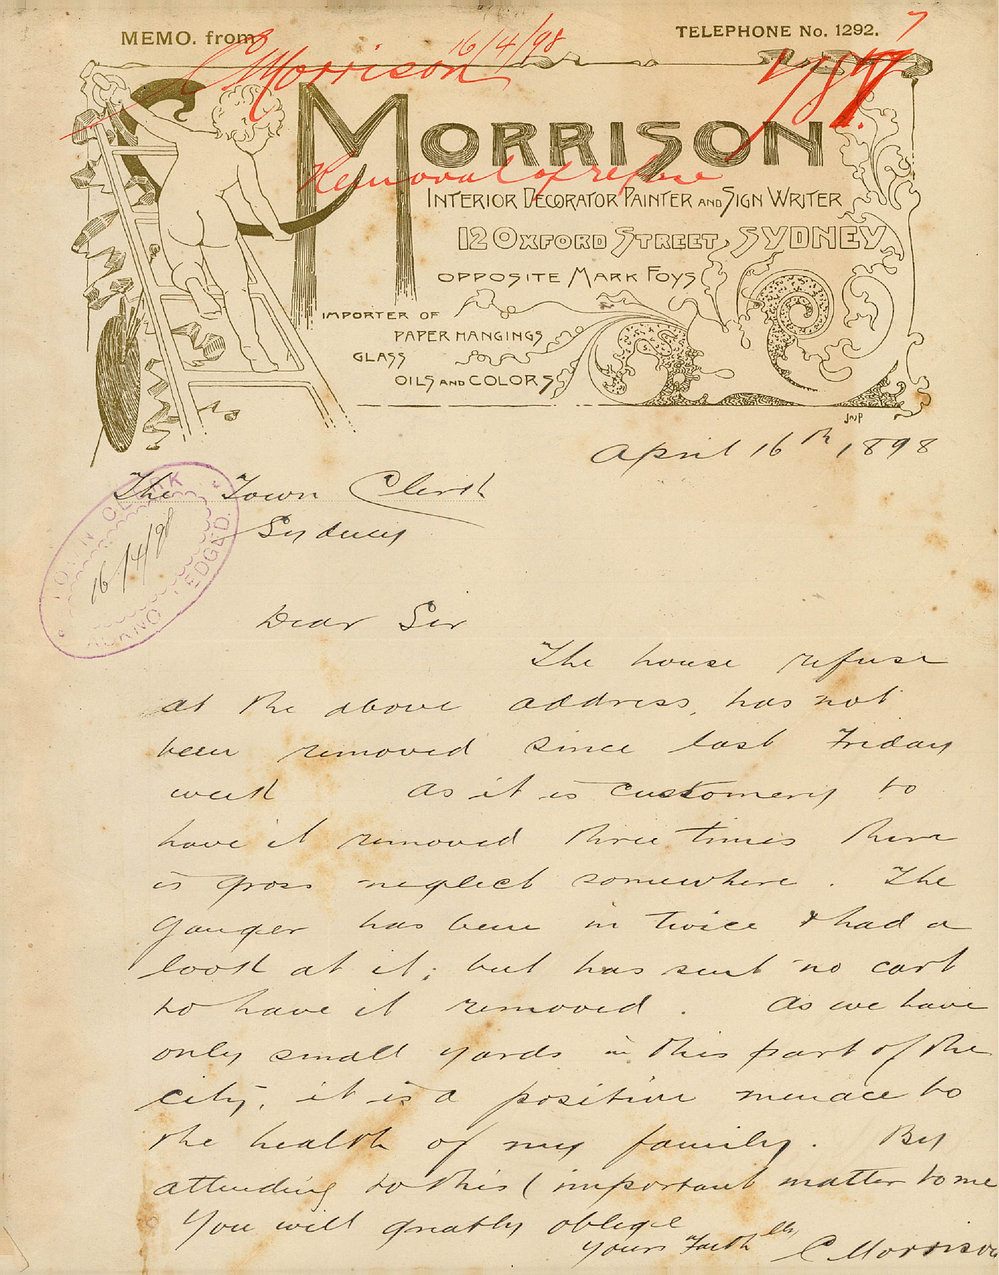 MEMO. from
TELEPHONE No. 1292.
C Morrison 16/4/98
MORRISON
Removal of refuse
INTERIOR DECORATOR PAINTER AND SIGN WRITER
12 OXFORD STREET, SYDNEY
OPPOSITE MARK FOYS
IMPORTER OF
PAPER HANGINGS
GLASS
OILS AND COLORS
JWP
April 16th 1898
The Town Clerk
Sydney
TOWN CLERK
16/4/98
ACKNOWLEDGED.
Dear Sir
The house refuse
at the above address, has not
been removed since last Friday
week as it is customery to
have it removed three times there
is gross neglect somewhere. The
ganger has been in twice & had a
look at it; but has sent no cart
to have it removed. As we have
only small yards in this part of the
city, it is a positive menace to
the health of my family. By
attending to this (important matter to me
You will greatly oblige
yours Faithlly C Morrison